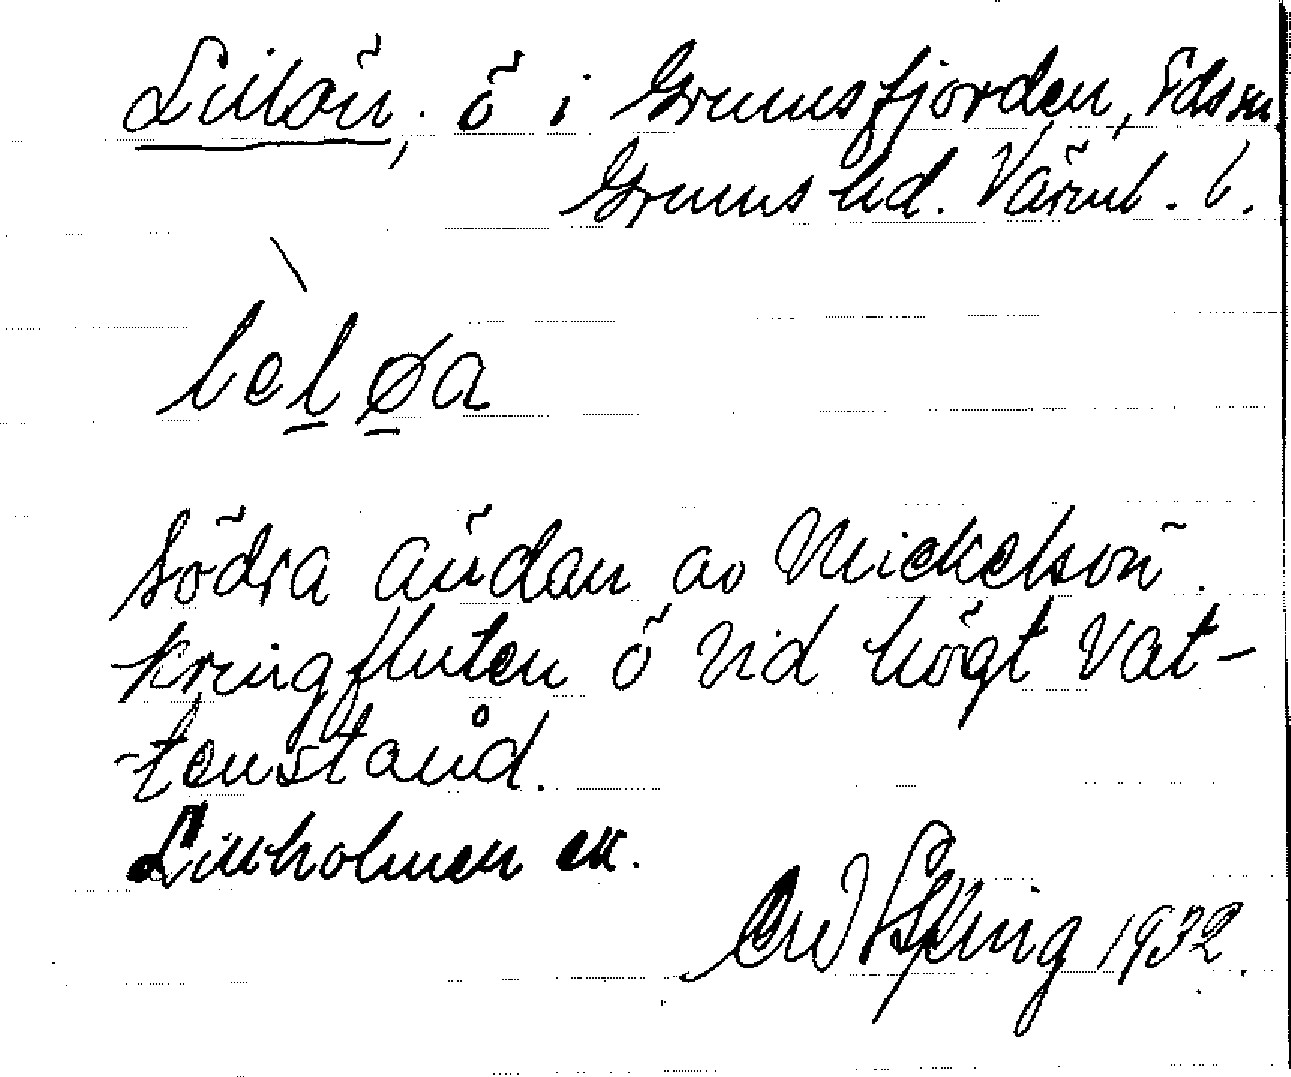 Lillön, ö i Grumsfjorden, Eds sn
Grums hd. Värml. l.
leløa
Södra ändan av Mickelsön.
Kringfluten ö vid högt vat-
-tenstånd.
Lillholmen ek.
1932.